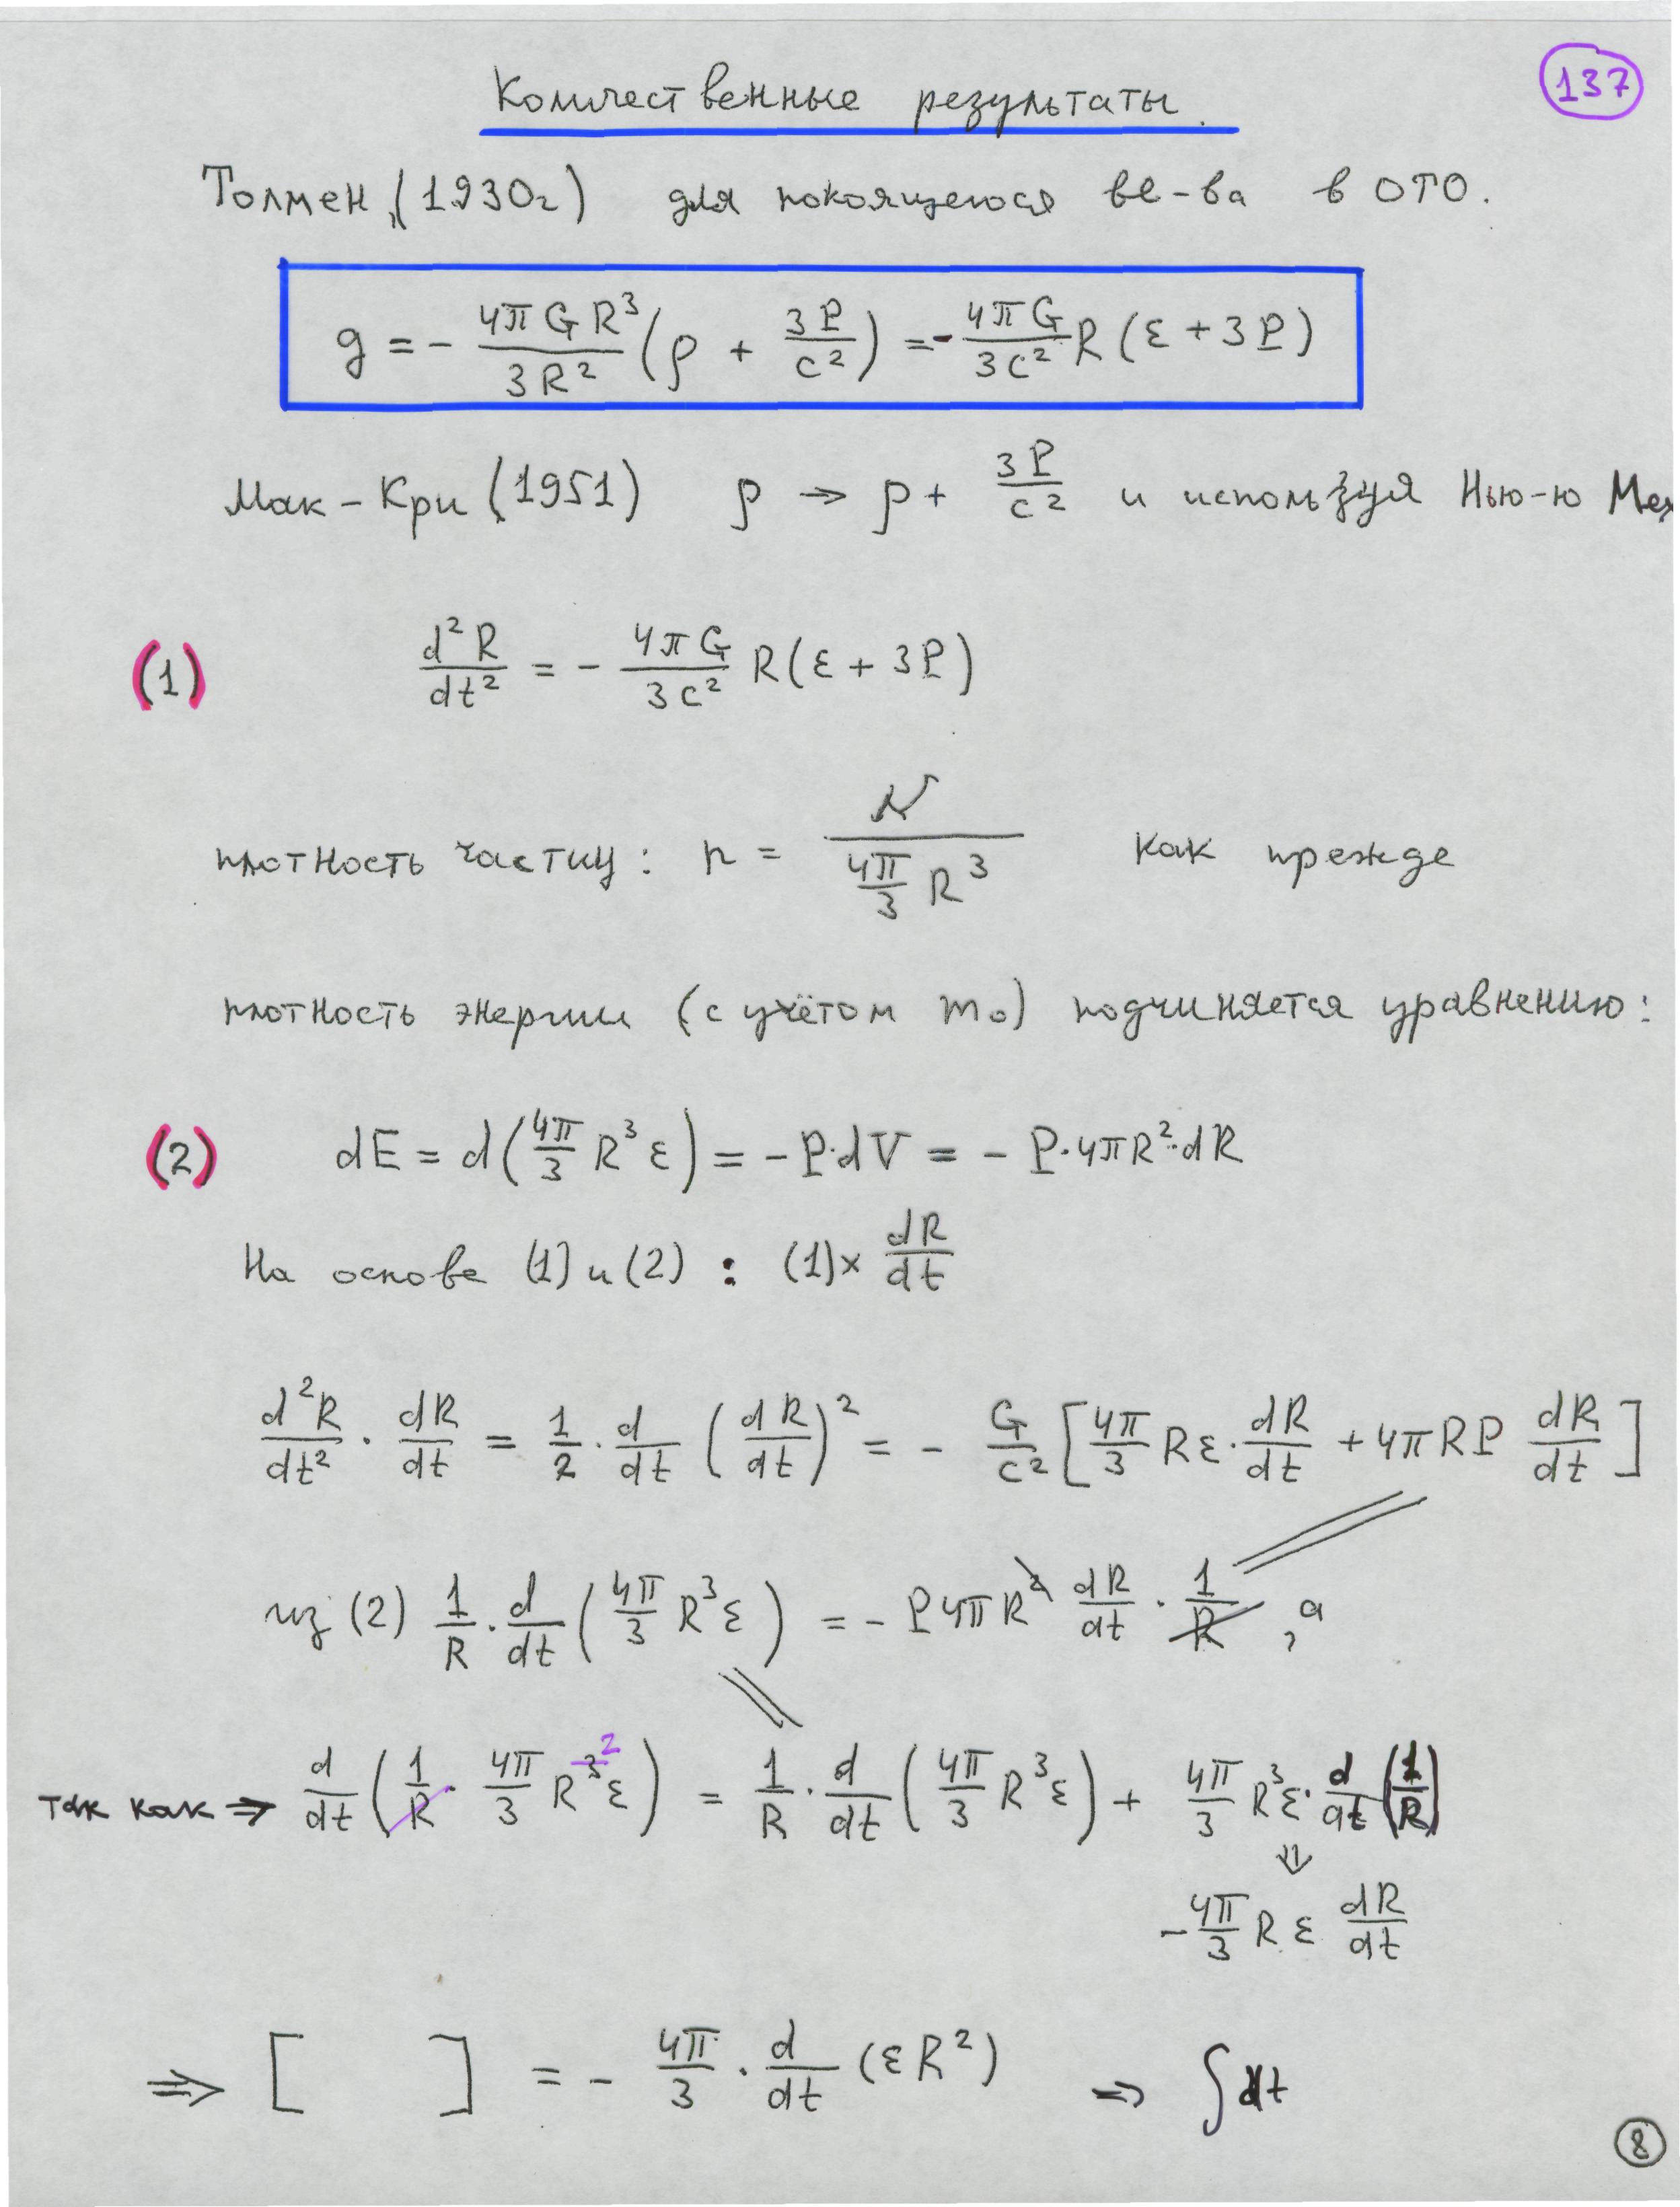 137
Количественные результаты.
Толмен, (1930г) для покоящегося ве-ва в ОТО.
g = - \frac{4π G R^3}{3 R^2} (ρ + \frac{3P}{c^2}) = - \frac{4π G}{3c^2} R (ε + 3P)
Мак-Кри (1951) ρ → ρ + \frac{3P}{c^2} и используя Нью-ю Мех
(1) \frac{d^2 R}{dt^2} = - \frac{4π G}{3c^2} R (ε + 3P)
плотность частиц: n = \frac{N}{\frac{4π}{3} R^3} как прежде
плотность энергии (с учётом m₀) подчиняется уравнению:
(2) dE = d(\frac{4π}{3} R^3 ε) = - P·dV = - P·4πR^2·dR
На основе (1) и (2) : (1)× \frac{dR}{dt}
\frac{d^2R}{dt^2} · \frac{dR}{dt} = \frac{1}{2} · \frac{d}{dt} (\frac{dR}{dt})^2 = - \frac{G}{c^2} [\frac{4π}{3} Rε · \frac{dR}{dt} + 4πRP \frac{dR}{dt}]
из (2) \frac{1}{R} · \frac{d}{dt} (\frac{4π}{3} R^3 ε) = - P4πR^2 \frac{dR}{dt} · \frac{1}{R} , а
так как ⇒ \frac{d}{dt} (\frac{1}{R} · \frac{4π}{3} R^{3 2} ε) = \frac{1}{R} · \frac{d}{dt} (\frac{4π}{3} R^3 ε) + \frac{4π}{3} R^3 ε · \frac{d}{dt} (\frac{1}{R})
⇓
- \frac{4π}{3} R ε \frac{dR}{dt}
⇒ [ ] = - \frac{4π}{3} · \frac{d}{dt} (εR^2) ⇒ ∫dt
8